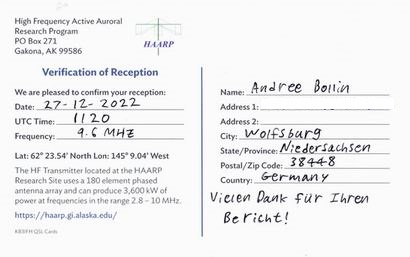 High Frequency Active Auroral
Research Program
PO Box 271
Gakona, AK 99586
HAARP
Verification of Reception
We are pleased to confirm your reception:
Date: 27-12-2022
UTC Time: 1120
Frequency: 9.6 MHZ
Lat: 62° 23.54' North Lon: 145° 9.04' West
The HF Transmitter located at the HAARP
Research Site uses a 180 element phased
antenna array and can produce 3,600 kW of
power at frequencies in the range 2.8 – 10 MHz.
https://haarp.gi.alaska.edu/
KB3IFH QSL Cards
Name: Andree Bollin
Address 1:
Address 2:
City: Wolfsburg
State/Province: Niedersachsen
Postal/Zip Code: 38448
Country: Germany
Vielen Dank für Ihren
Bericht!